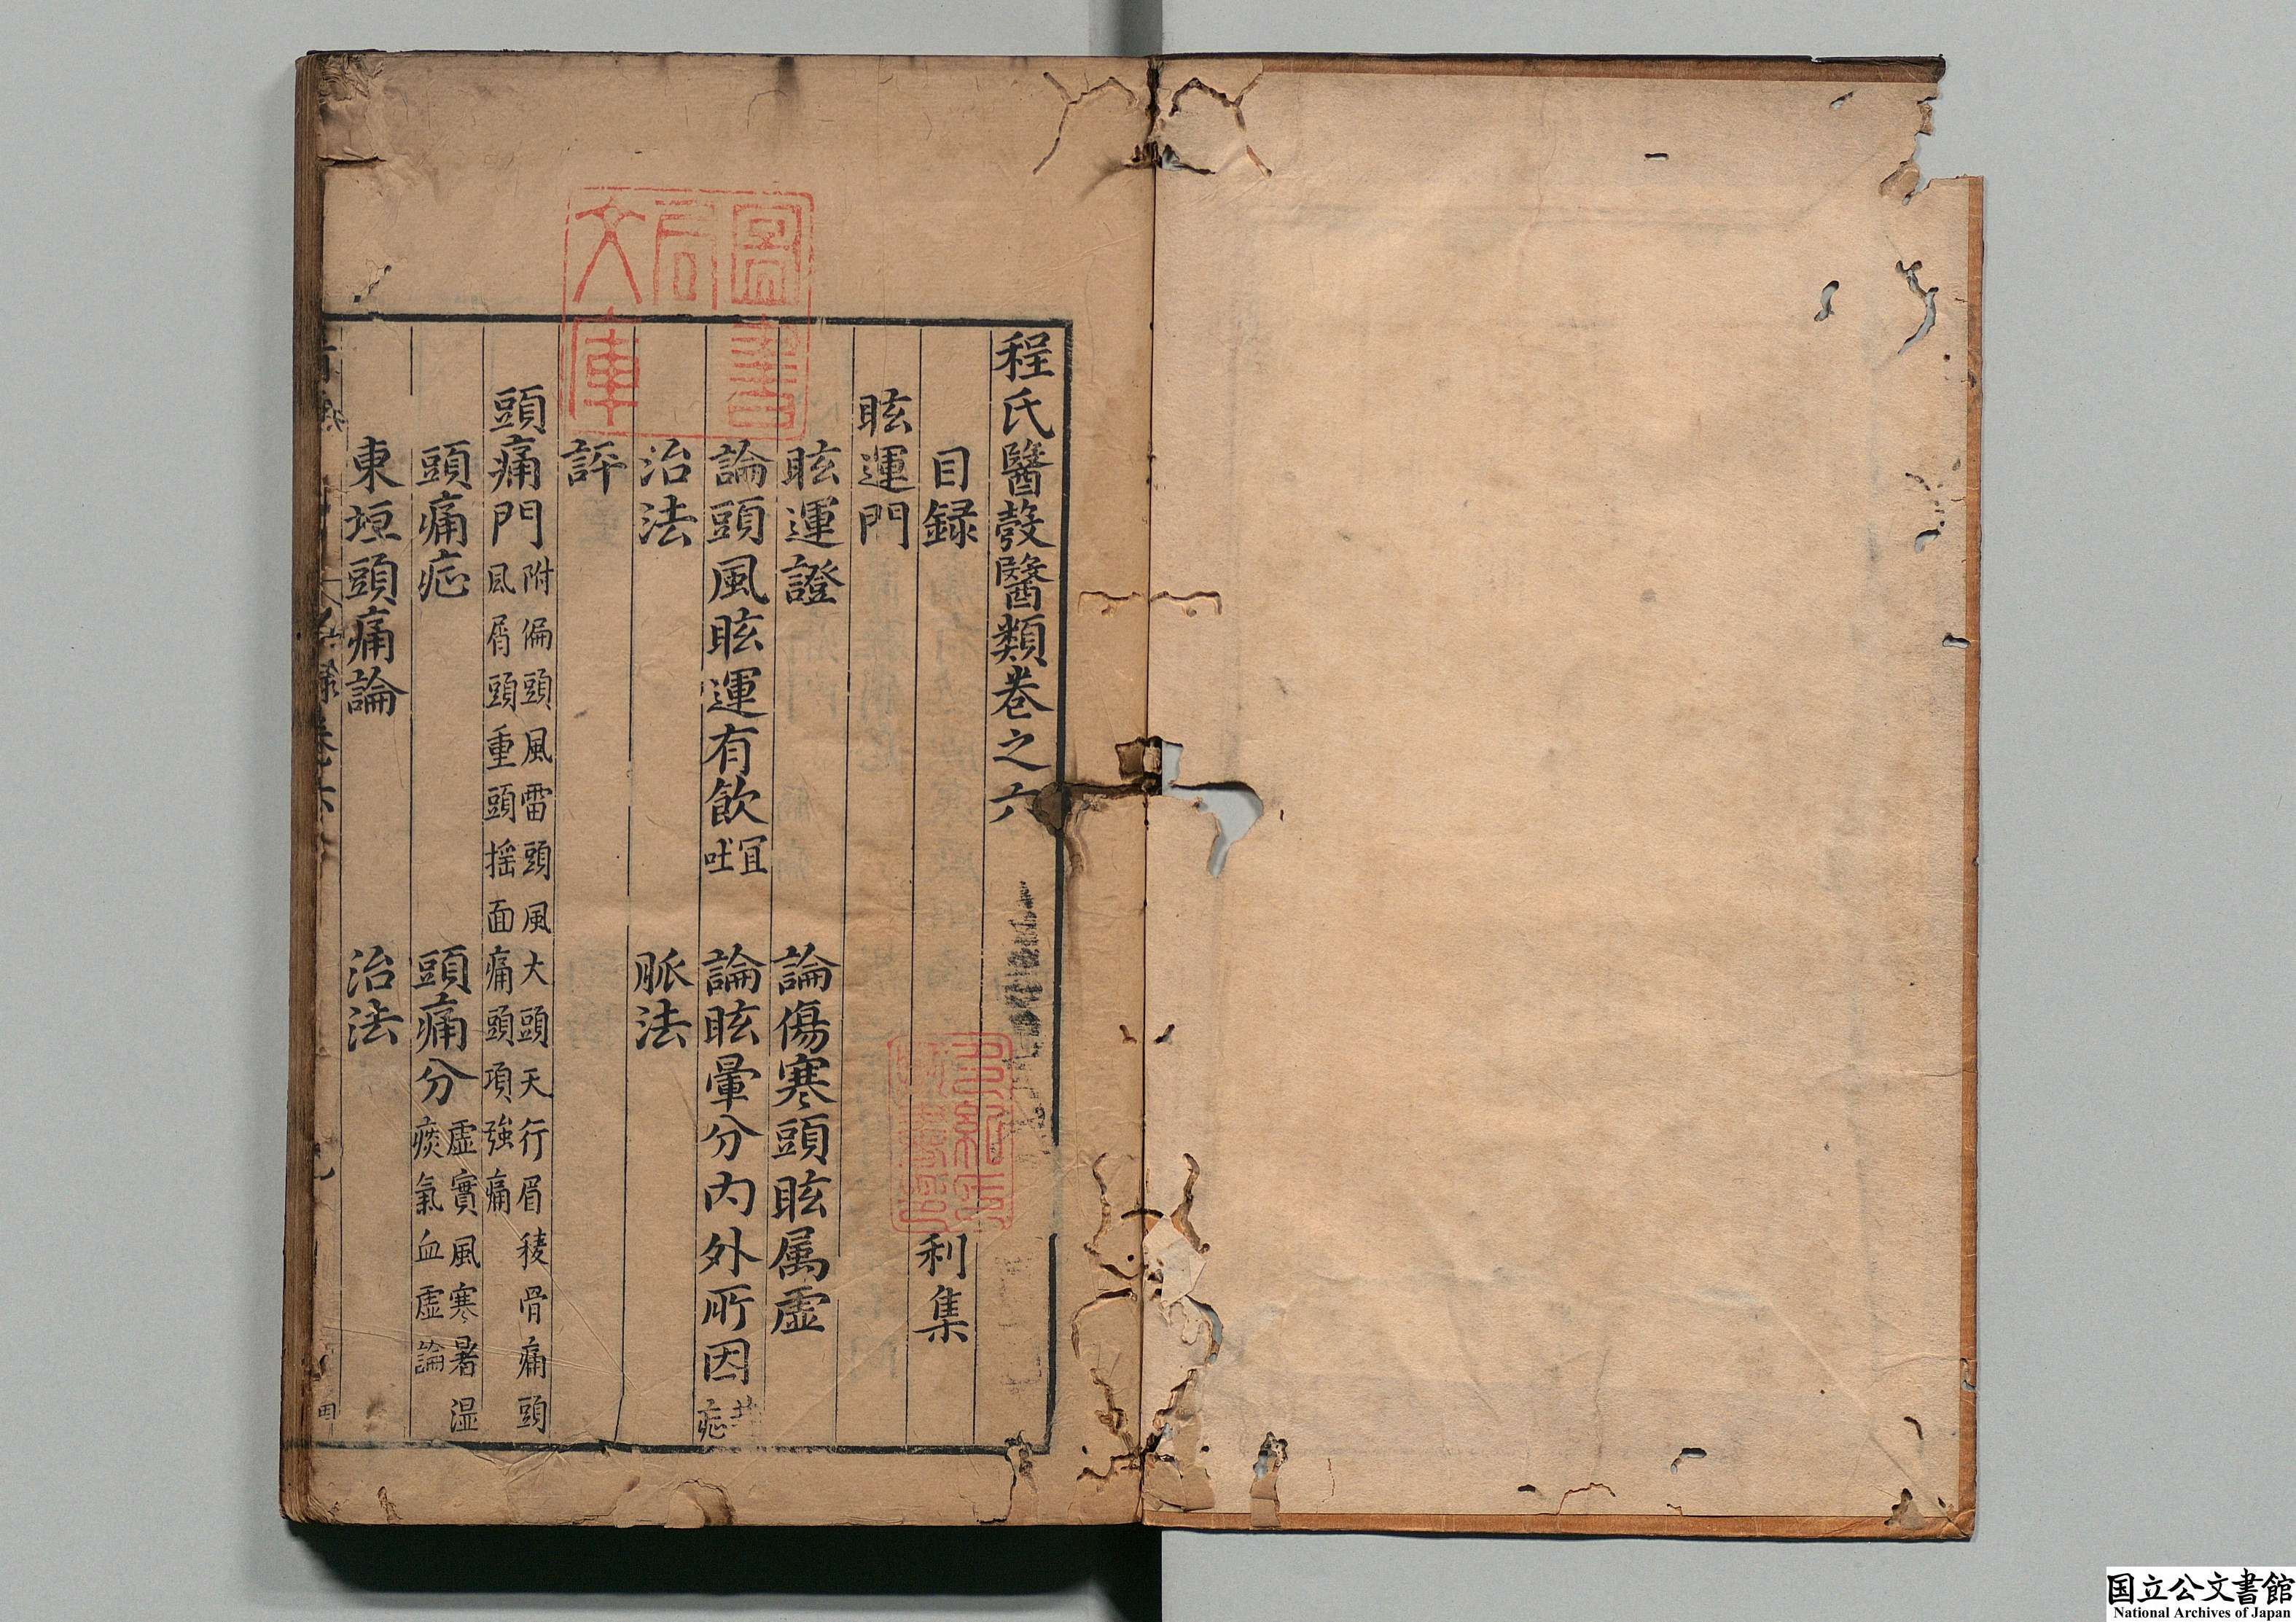 程氏醫彀醫類卷之六
目録
利集
眩運門
眩運證
論傷寒頭眩属虚
論頭風眩運有飲宜吐
論眩暈分内外所因共症
治法
脈法
評
頭痛門附偏頭風雷頭風大頭天行眉稜骨痛頭
風屑頭重頭揺面痛頭項強痛
頭痛症
頭痛分虚實風寒暑湿
痰氣血虚論
東垣頭痛論
治法
圖書
局
文庫
国立公文書館
National Archives of Japan